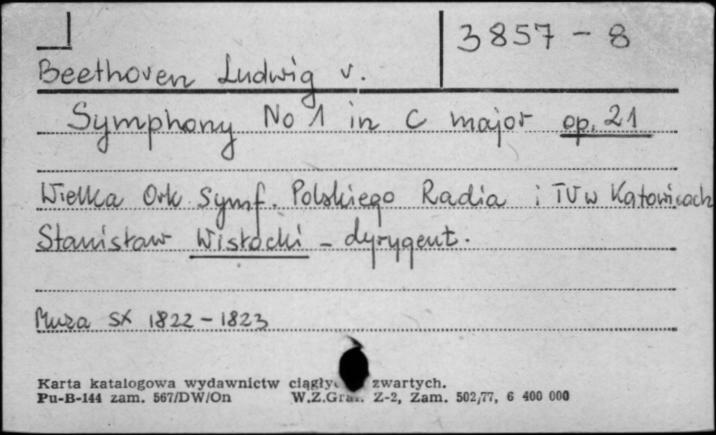 3857 - 8
Beethoven Ludwig v.
Symphony No 1 in C major op. 21
Wielka Ork Symf. Polskiego Radia i TV w Katowicach
Stanisław Wisłocki - dyrygent.
Muza SX 1822 - 1823
Karta katalogowa wydawnictw ciągły zwartych.
Pu-B-144 zam. 567/DW/On W.Z.Graf. Z-2, Zam. 502/77, 6 400 000